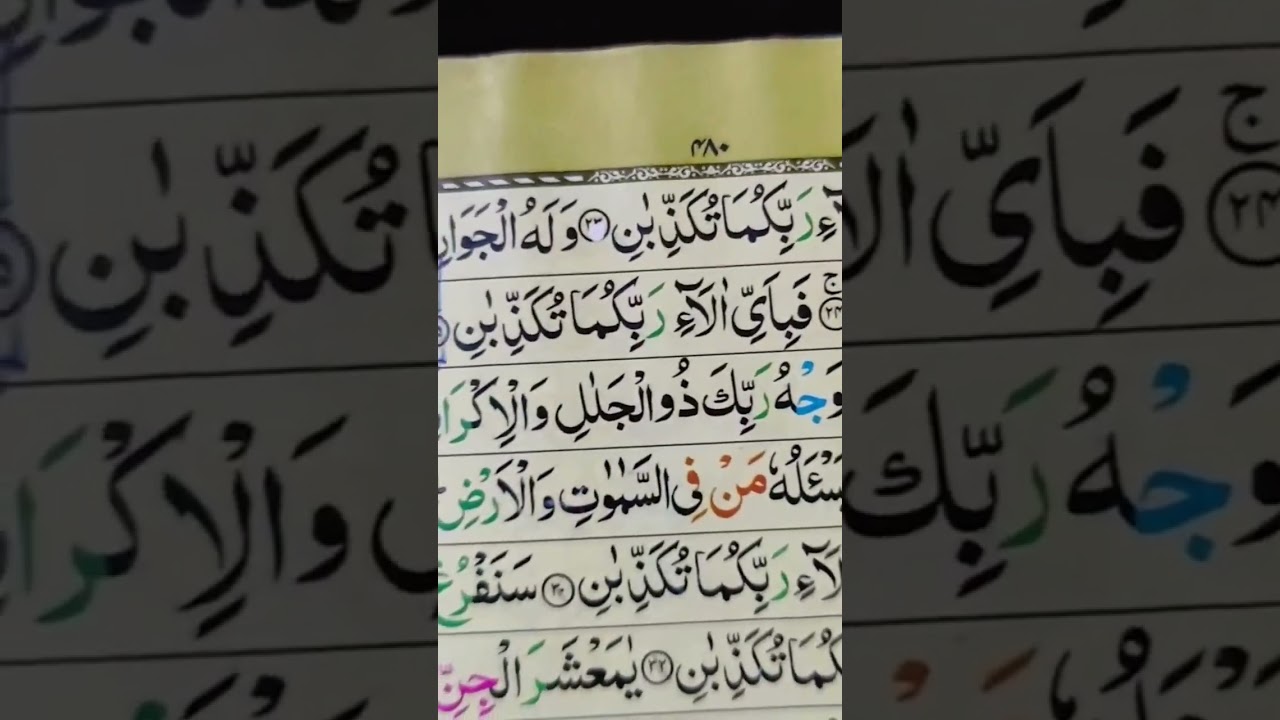 ۴۸۰
رَبِّكُمَا تُكَذِّبٰنِ ۲۳ وَلَهُ الْجَوَارِ
۲۴ ج فَبِاَيِّ اٰلَآءِ رَبِّكُمَا تُكَذِّبٰنِ
وَجْهُ رَبِّكَ ذُو الْجَلٰلِ وَالْاِكْرَا
سْـَٔلُهٗ مَنْ فِي السَّمٰوٰتِ وَالْاَرْضِ
لَآءِ رَبِّكُمَا تُكَذِّبٰنِ ۳۰ سَنَفْرُغُ
كُمَا تُكَذِّبٰنِ ۳۲ يٰمَعْشَرَ الْجِنِّ